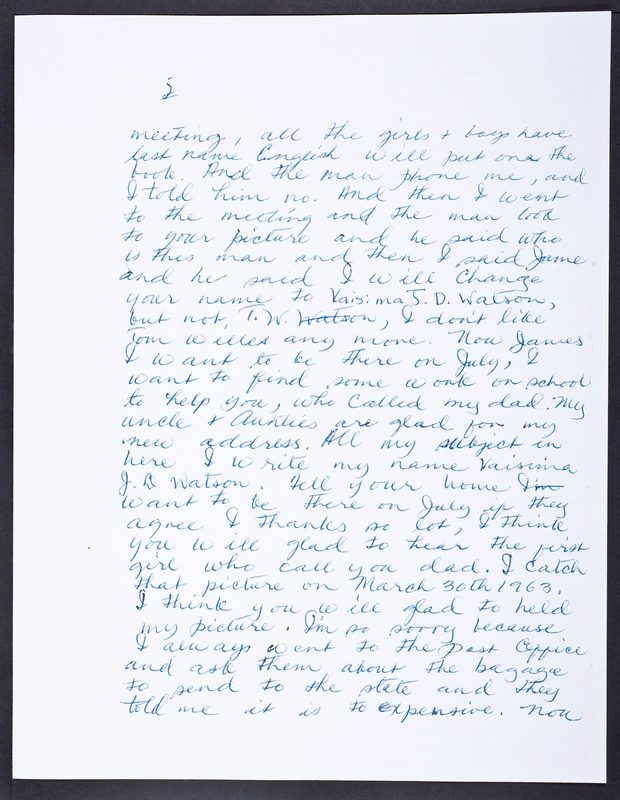 5
meeting, all the girls & boys have
last name English will put on a the
book. And the man phone me, and
I told him no. And then I went
to the meeting and the man look
to your picture and he said who
is this man and then I said Jame
and he said I will change
your name to Vaisima J. D. Watson,
but not, T. W. Watson, I don't like
Tom Willes any more. Now James
I want to be there on July, I
want to find some work on school
to help you, who called my dad. My
uncle & Aunties are glad for my
new address. All my subject in
here I write my name Vaisima
J. D. Watson. Tell your home I'm
want to be there on July if they
agree I thanks so lot, I think
you will glad to hear the first
girl who call you dad. I catch
that picture on March 30th 1963.
I think you will glad to held
my picture. I'm so sorry because
I always went to the Post Office
and ask them about the bagage
to send to the state and they
told me it is to expensive. Now